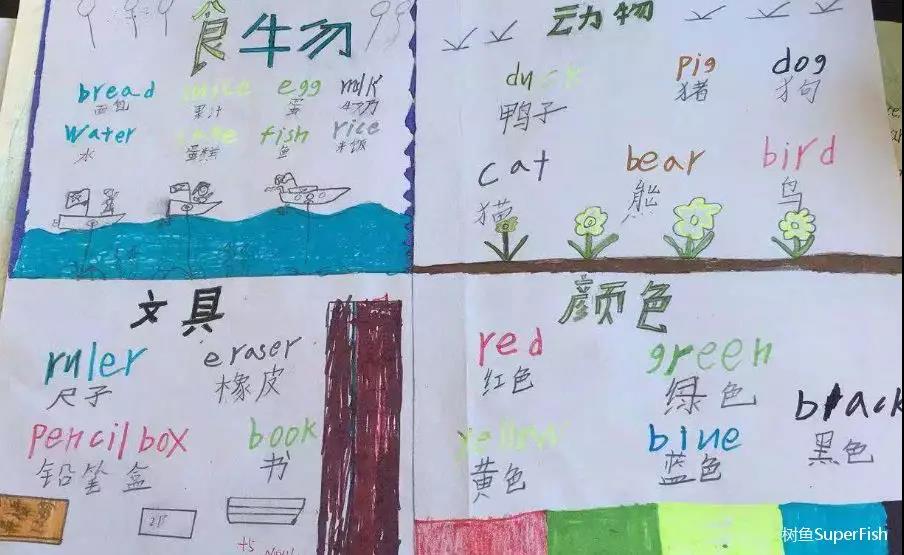 食物
bread juice egg milk
面包 果汁 蛋 牛奶
water cake fish rice
水 蛋糕 鱼 米饭
动物
duck pig dog
鸭子 猪 狗
cat bear bird
猫 熊 鸟
文具
ruler eraser
尺子 橡皮
pencilbox book
铅笔盒 书
颜色
red green
红色 绿色
yellow blue black
黄色 蓝色 黑色
树鱼SuperFish